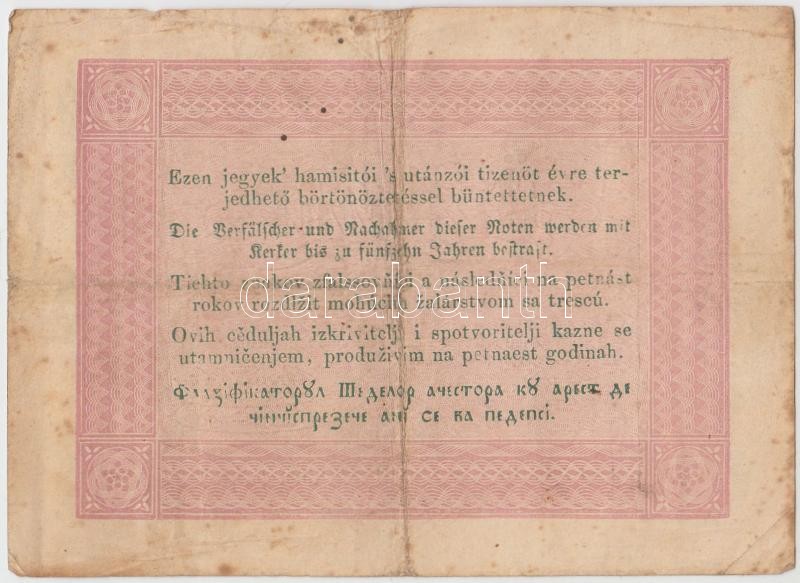 Ezen jegyek' hamisitói 's utánzói tizenöt évre ter-
jedhető börtönöztetéssel büntettetnek.
Die Verfälscher-und Nachahmer dieser Noten werden mit
Kerker bis zu fünfzehn Jahren bestraft.
Tichto a následňíci na petnást
rokov rozdlžit žalárstvom sa trescú.
Ovih cěduljah izkřivitelji i spotvoritelji kazne se
utamničenjem, produživim na petnaest godinah.
Фалзіфікаторꙋл Шеделор ачестора кꙋ арест де
чінчіспрезече ані се ва педепсі.
darabanth